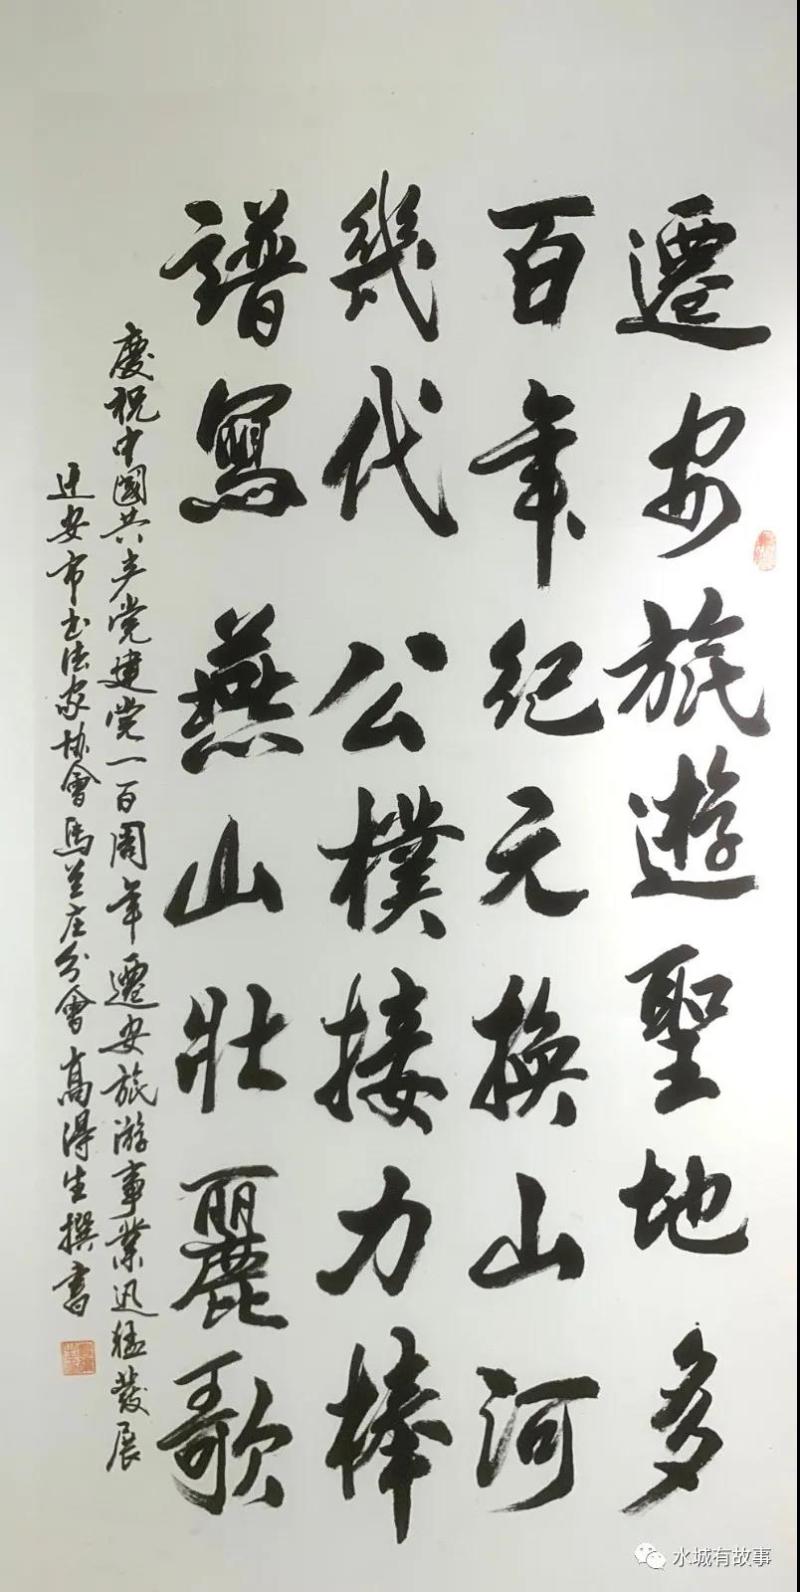 遷安旅遊聖地多
百年纪元换山河
幾代公樸接力棒
譜寫燕山壯麗歌
慶祝中國共产党建党一百周年遷安旅游事業迅猛發展
迁安市书法家协會馬兰庄分會高得生撰書
水城有故事